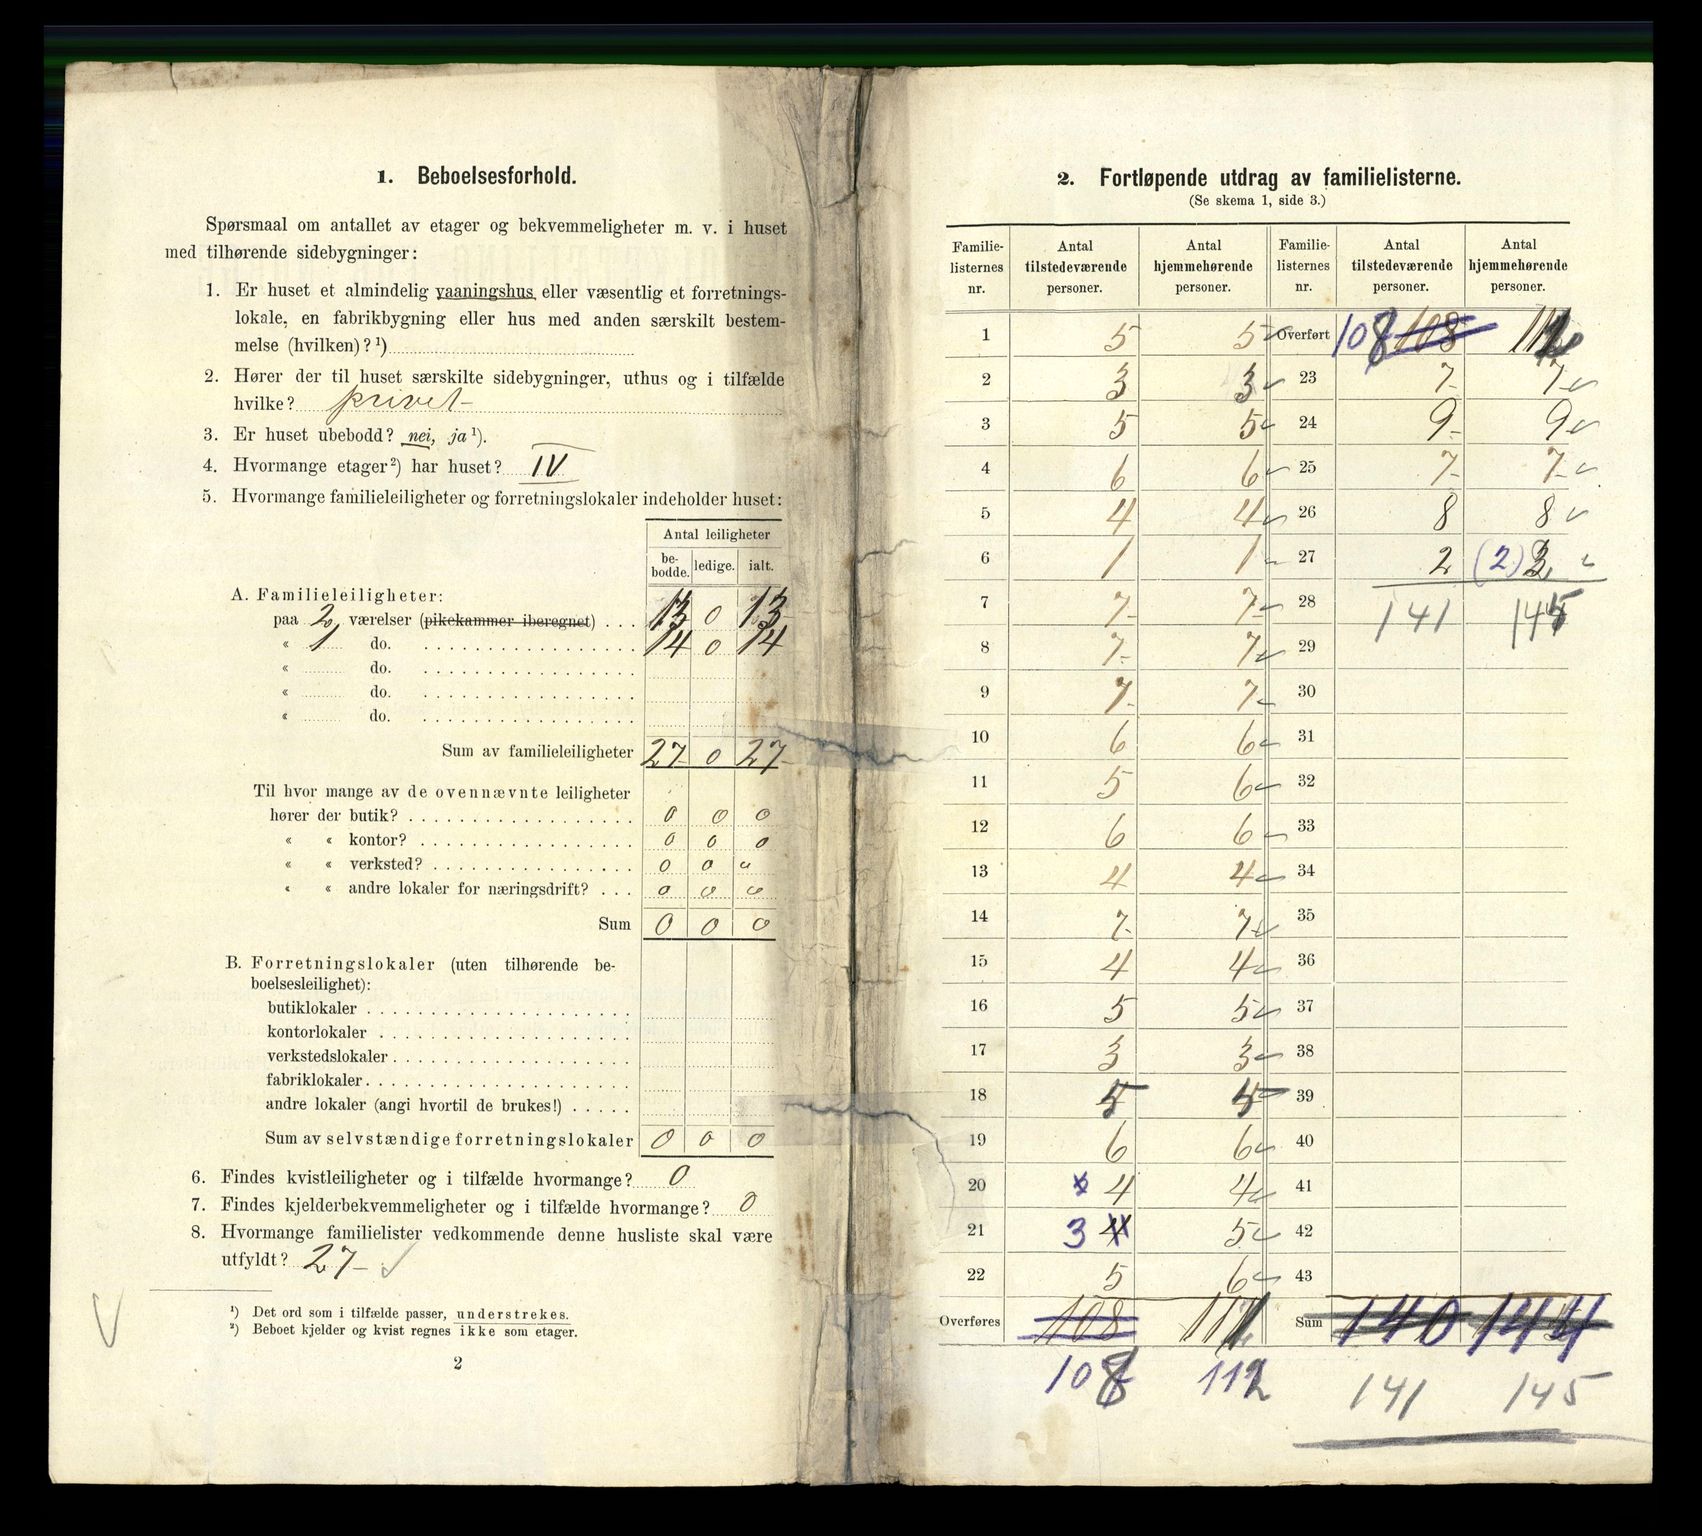 1. Beboelsesforhold.
Spørsmaal om antallet av etager og bekvemmeligheter m. v. i huset
med tilhørende sidebygninger:
1. Er huset et almindelig vaaningshus eller væsentlig et forretnings-
lokale, en fabrikbygning eller hus med anden særskilt bestem-
melse (hvilken)?¹)
2. Hører der til huset særskilte sidebygninger, uthus og i tilfælde
hvilke? privet
3. Er huset ubebodd? nei, ja ¹).
4. Hvormange etager²) har huset? IV
5. Hvormange familieleiligheter og forretningslokaler indeholder huset:
Antal leiligheter
be-
bodde. ledige. ialt.
A. Familieleiligheter:
paa 2 værelser (pikekammer iberegnet) . . . 13 0 13
« 1 do. 14 0 14
« do.
« do.
« do.
Sum av familieleiligheter 27 0 27
Til hvor mange av de ovennævnte leiligheter
hører der butik? 0 0 0
« « kontor? 0 0 0
« « verksted? 0 0 "
« « andre lokaler for næringsdrift? . . . 0 0 0
Sum 0 0 0
B. Forretningslokaler (uten tilhørende be-
boelsesleilighet):
butiklokaler
kontorlokaler
verkstedslokaler
fabriklokaler
andre lokaler (angi hvortil de brukes!)
Sum av selvstændige forretningslokaler 0 0 0
6. Findes kvistleiligheter og i tilfælde hvormange? 0
7. Findes kjelderbekvemmeligheter og i tilfælde hvormange? 0
8. Hvormange familielister vedkommende denne husliste skal være
utfyldt? 27
¹) Det ord som i tilfælde passer, understrekes.
²) Beboet kjelder og kvist regnes ikke som etager.
2
2. Fortløpende utdrag av familielisterne.
(Se skema 1, side 3.)
Familie-
listernes
nr. Antal
tilstedeværende
personer. Antal
hjemmehørende
personer. Familie-
listernes
nr. Antal
tilstedeværende
personer. Antal
hjemmehørende
personer.
1 5 5 Overført 108 108 112
2 3 3 23 7 7
3 5 5 24 9 9
4 6 6 25 7 7
5 4 4 26 8 8
6 1 1 27 2 (2) 3
7 7 7 28 141 145
8 7 7 29
9 7 7 30
10 6 6 31
11 5 6 32
12 6 6 33
13 4 4 34
14 7 7 35
15 4 4 36
16 5 5 37
17 3 3 38
18 5 5 39
19 6 6 40
20 4 4 41
21 3 4 5 42
22 5 6 43
Overføres 108 111 Sum 140 144
108 112 141 145